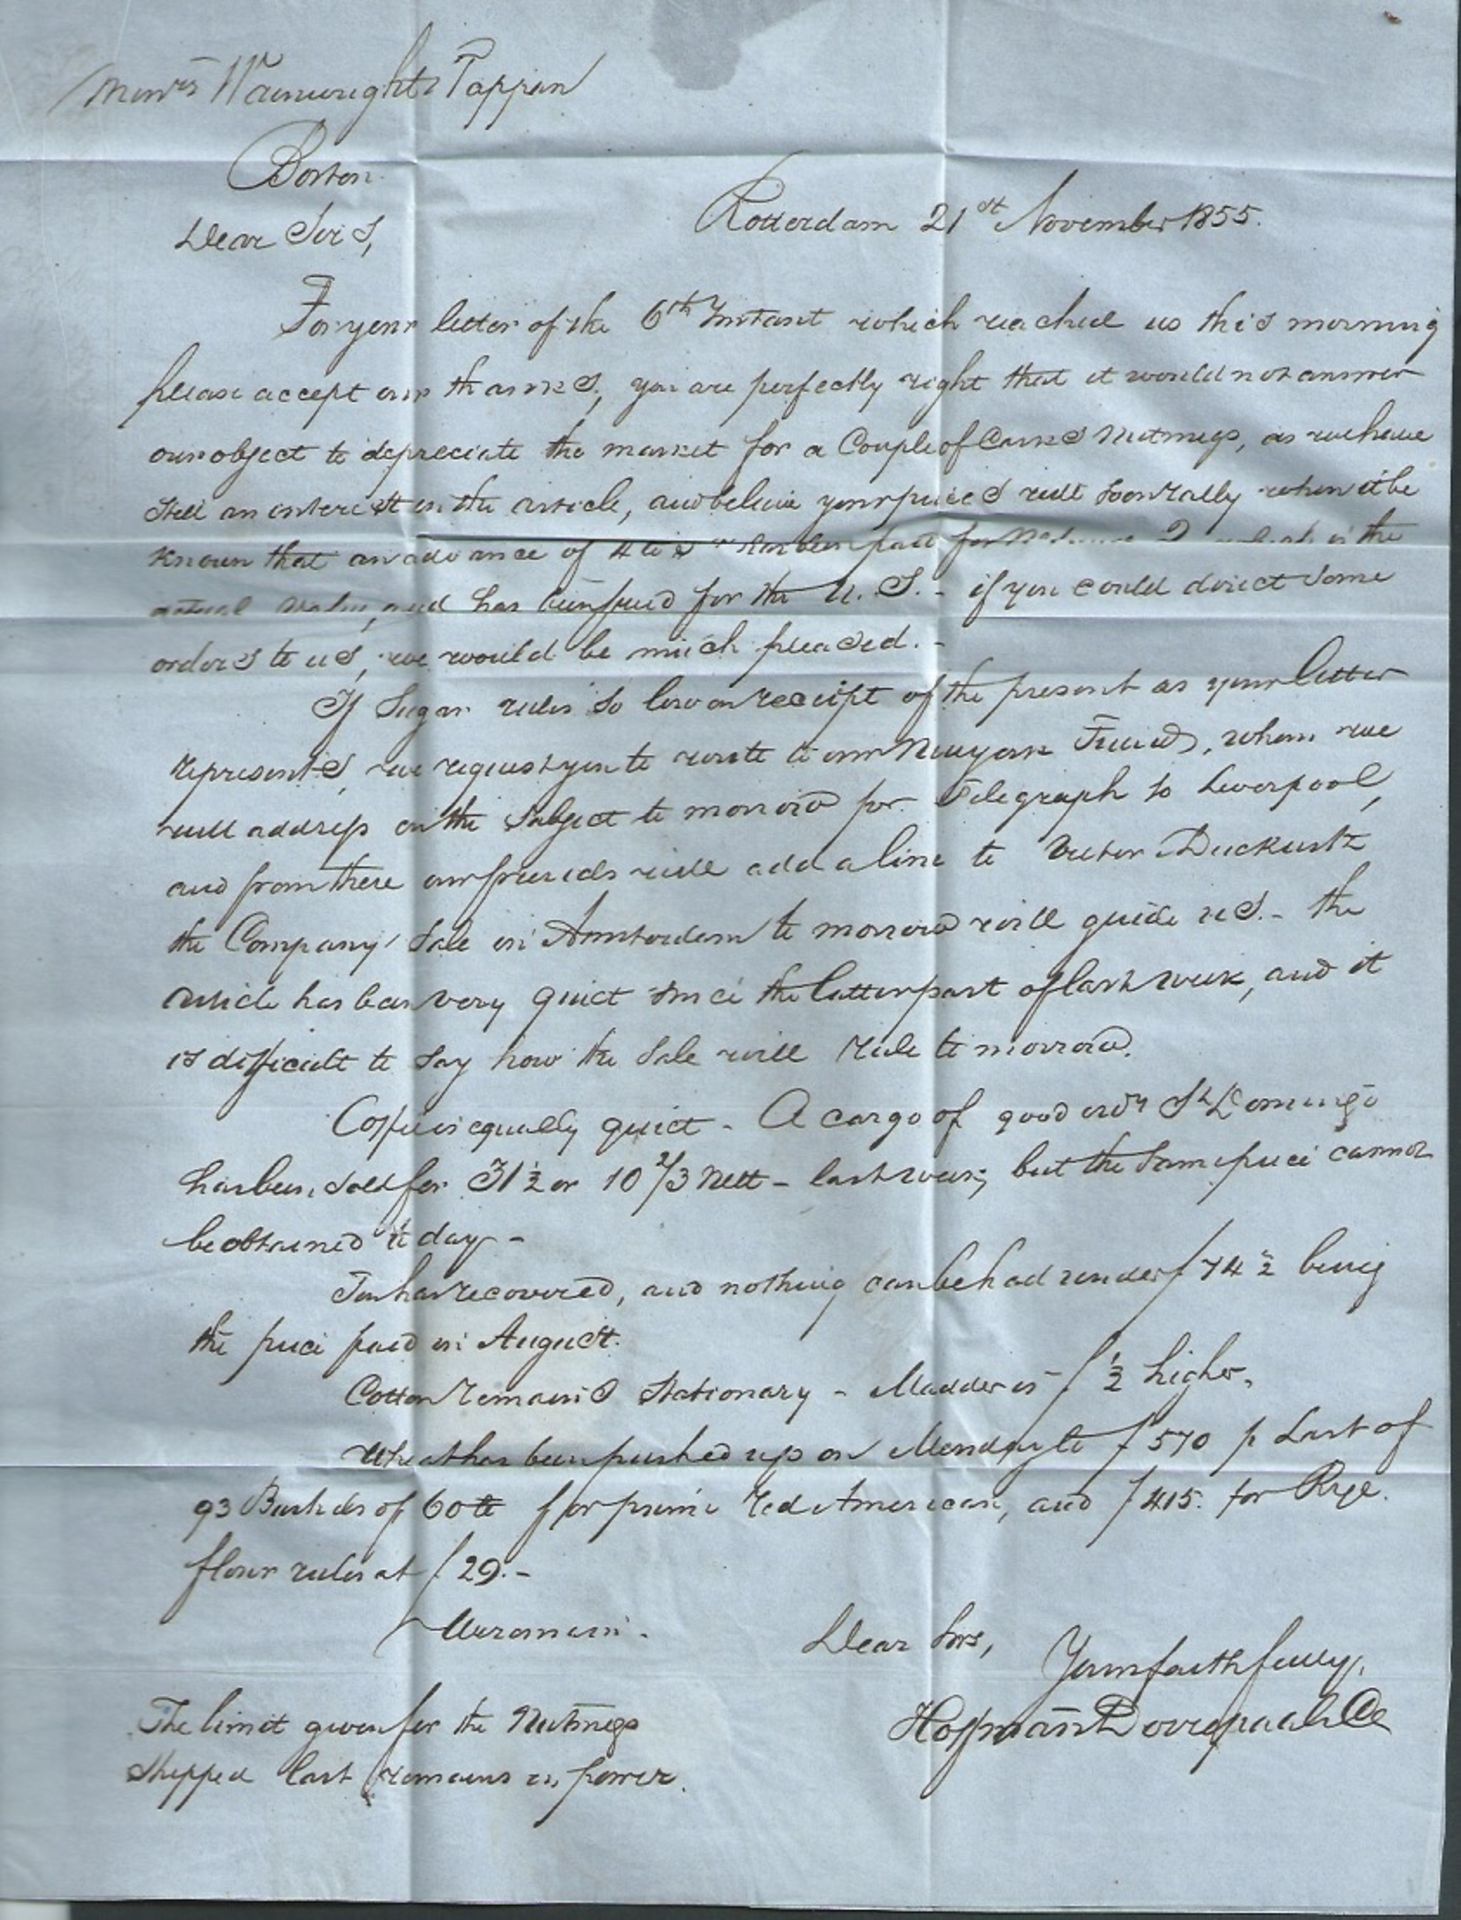 Messrs Wainwright & Tappan
Boston.
Rotterdam 21st November 1855.
Dear Sirs,
For your letter of the 6th Instant which reached us this morning
please accept our thanks, you are perfectly right that it would not answer
our object to depreciate the market for a Couple of Casks Nutmegs, as we have
still an interest in the article, and believe your prices will soon rally when it be
known that an advance of 4 to has been paid for which is the
actual value, and has been paid for the U. S. - if you could direct some
orders to us, we would be much pleased. -
If Sugar rules so low on receipt of the present as your letter
represents, we request you to write to our New York Friends, whom we
will address on the subject to morrow per Telegraph to Liverpool,
and from there our friends will add a line to
the Company's Sale in Amsterdam to morrow will guide us. - the
article has been very quiet since the latter part of last week, and it
is difficult to say how the Sale will rule to morrow.
Coffee is equally quiet - A cargo of good ordy St Domingo
has been sold for 31 1/2 or 10 2/3 Nett - last week; but the same price cannot
be obtained to day -
Tin has recovered, and nothing can be had under f 74 1/2 being
the price paid in August.
Cotton remains Stationary - Madder is f 1/2 higher.
Wheat has been pushed up on Monday to f 570 p Last of
93 Bushels of 60 lb for prime red American, and f 415. for Rye.
flour rules at f 29. -
We remain.
Dear Sirs,
Yours faithfully,
The limit given for the Nutmegs
shipped last remains in power.